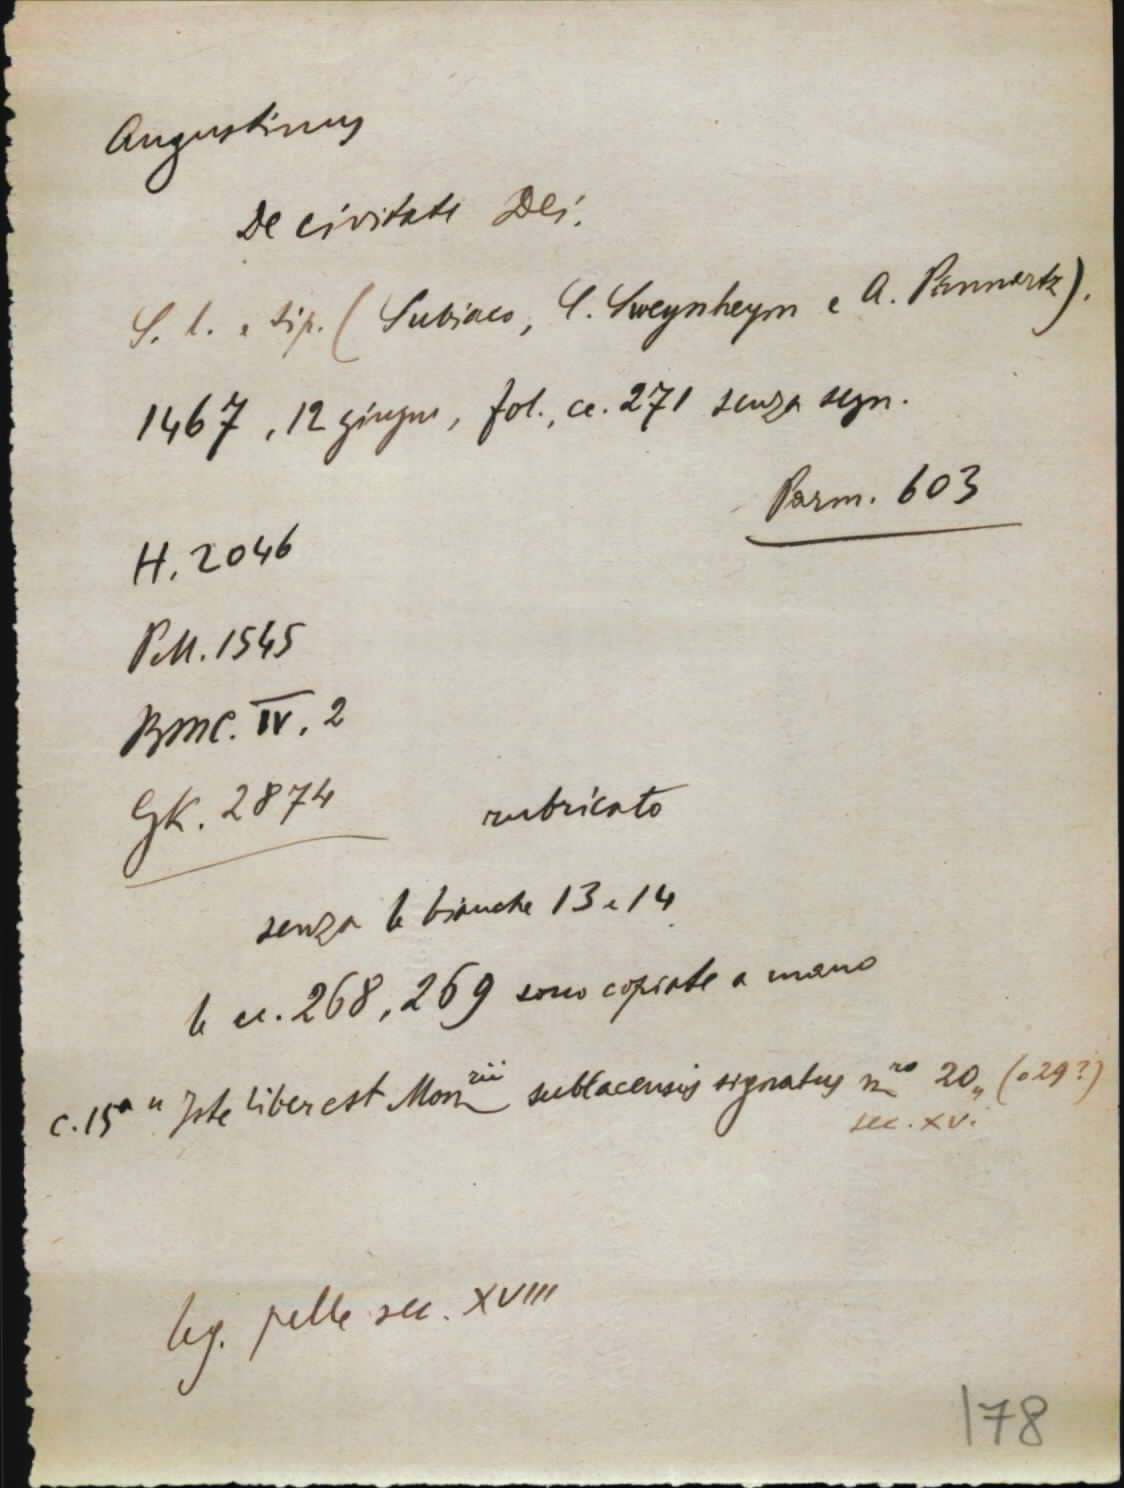 Augustinus
De civitate Dei.
S. l. e tip. (Subiaco, C. Sweynheym e A. Pannartz).
1467, 12 giugno, fol., cc. 271 senza segn.
Parm. 603
H. 2046
Pell. 1545
BMC. IV. 2
GK. 2874
rubricato
senza le bianche 13 e 14
le cc. 268, 269 sono copiate a mano
c. 15a "Iste liber est Monrii sublacensis signatus nro 20" (o 29?)
sec. XV.
leg. pelle sec. XVIII
178